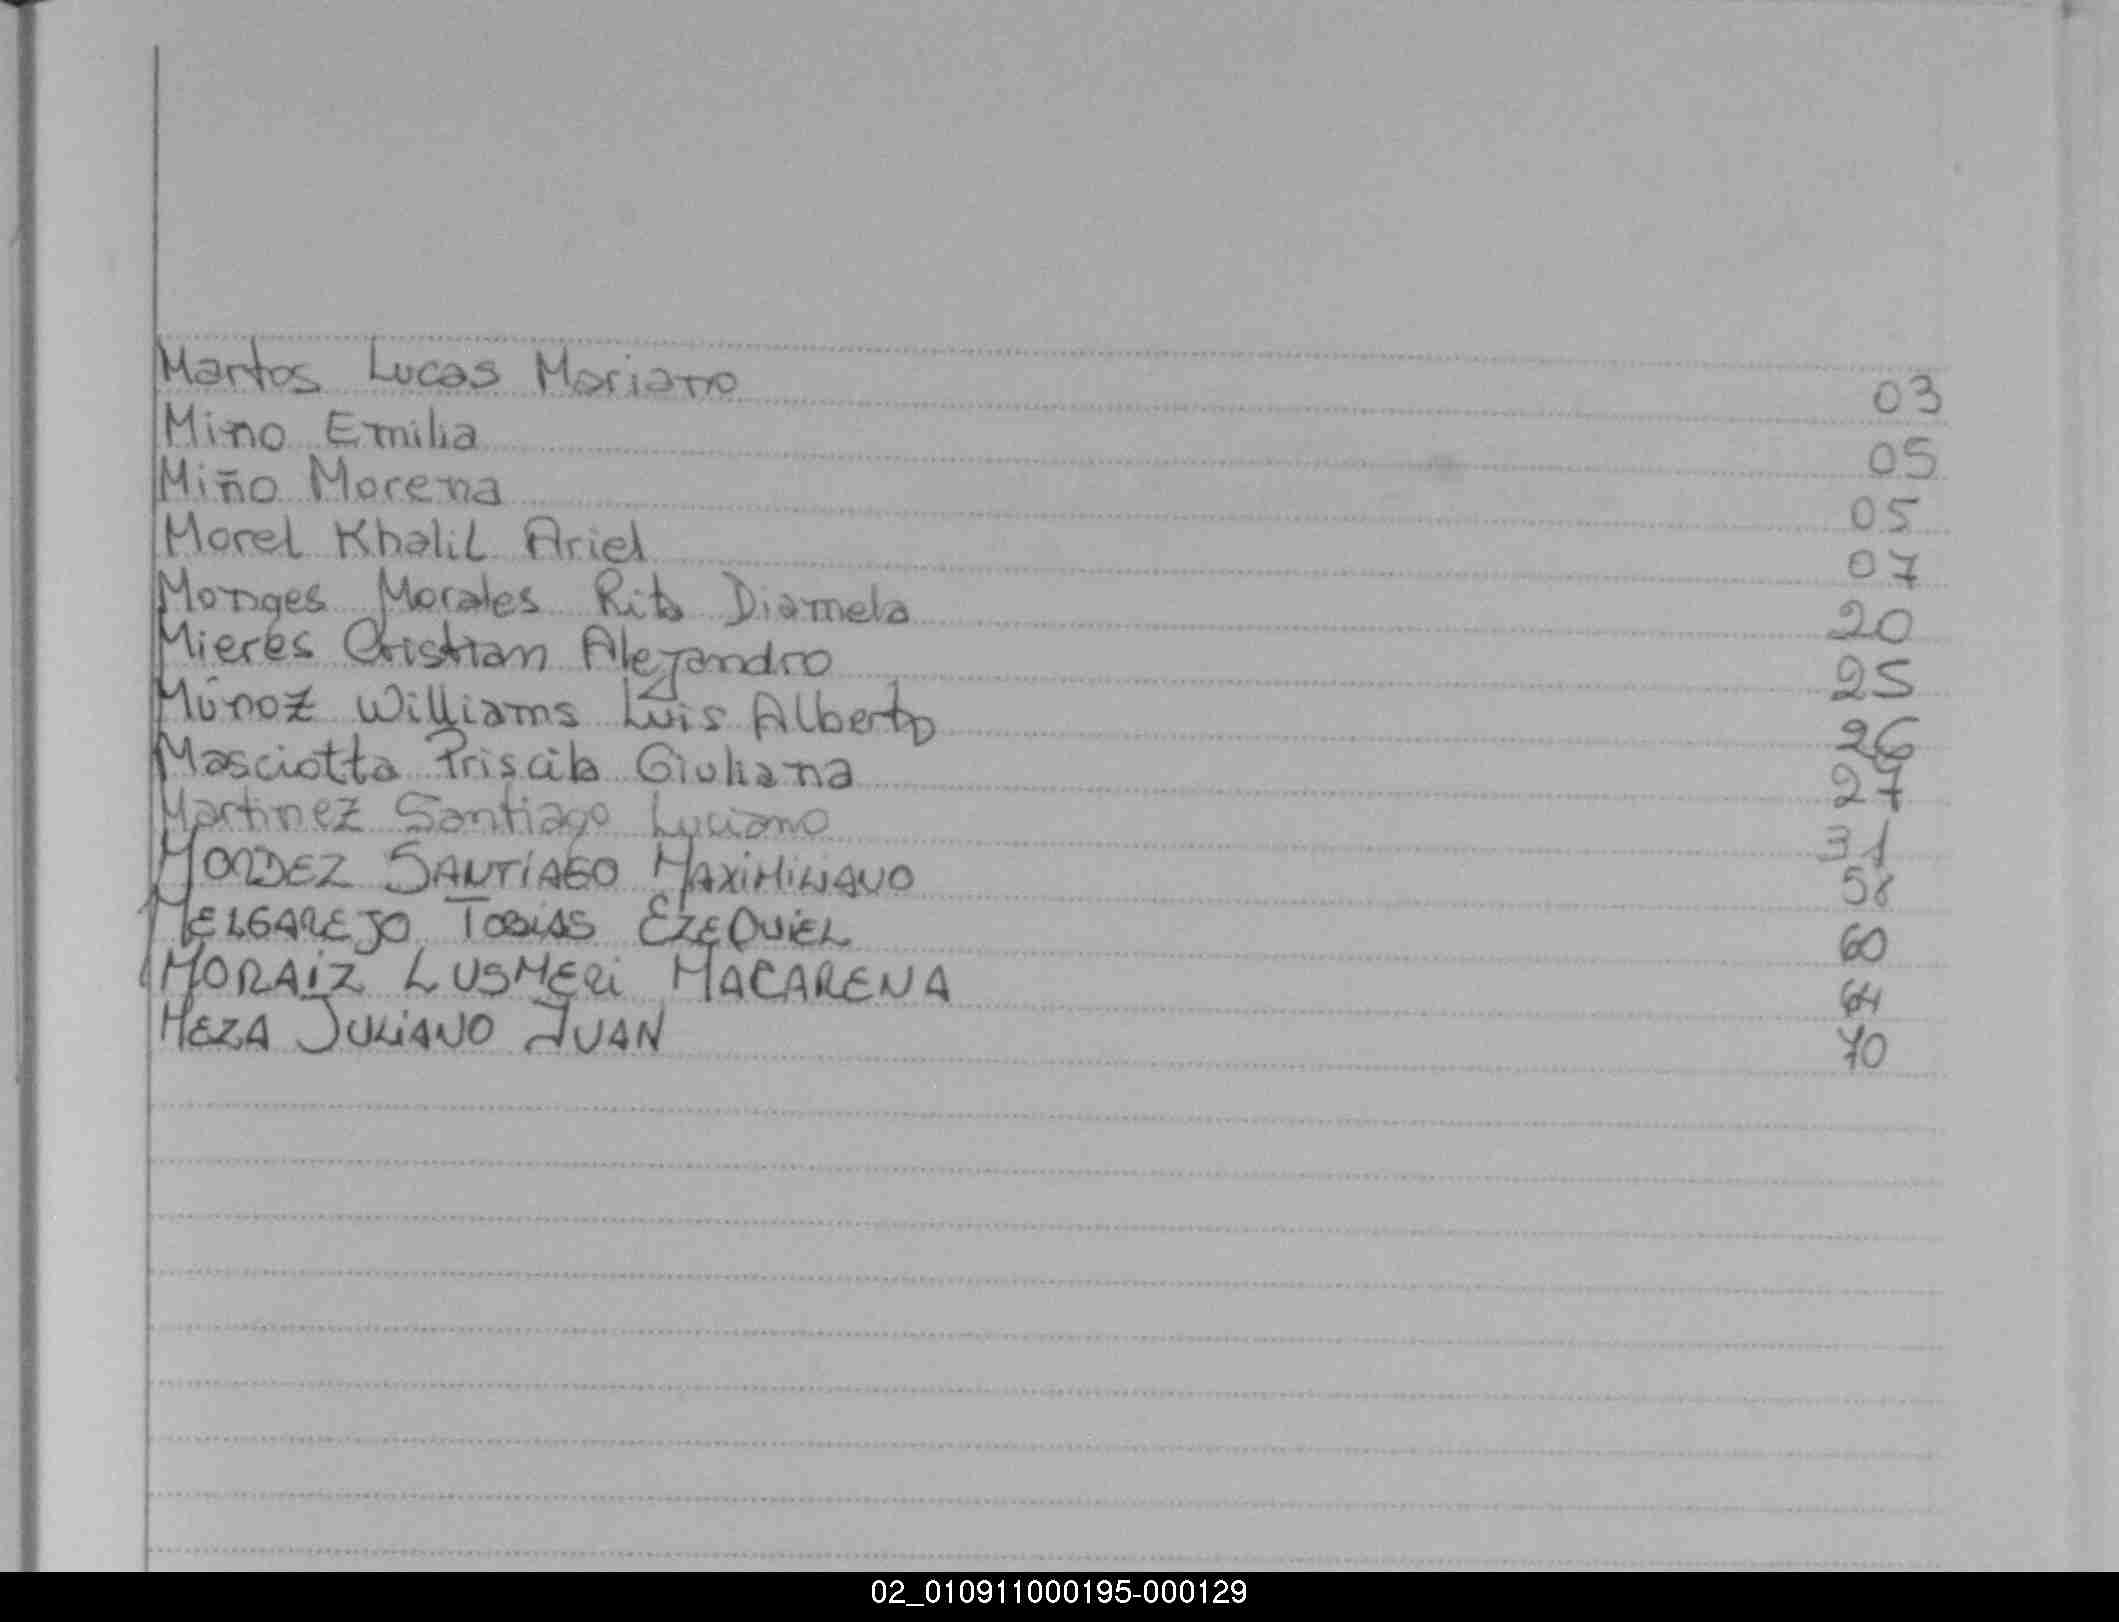 Martos Lucas Mariano 03
Mino Emilia 05
Miño Morena 05
Morel Khalil Ariel 07
Monges Morales Rita Diamela 20
Mieres Cristian Alejandro 25
Múnoz Williams Luis Alberto 26
Masciotta Priscila Giuliana 27
Martinez Santiago Luciano 31
SANTIAGO MAXIMILIANO 58
MELGAREJO TOBIAS EZEQUIEL 60
MORAIZ LUSMERI MACARENA 64
MEZA JULIANO JUAN 70
02_010911000195-000129